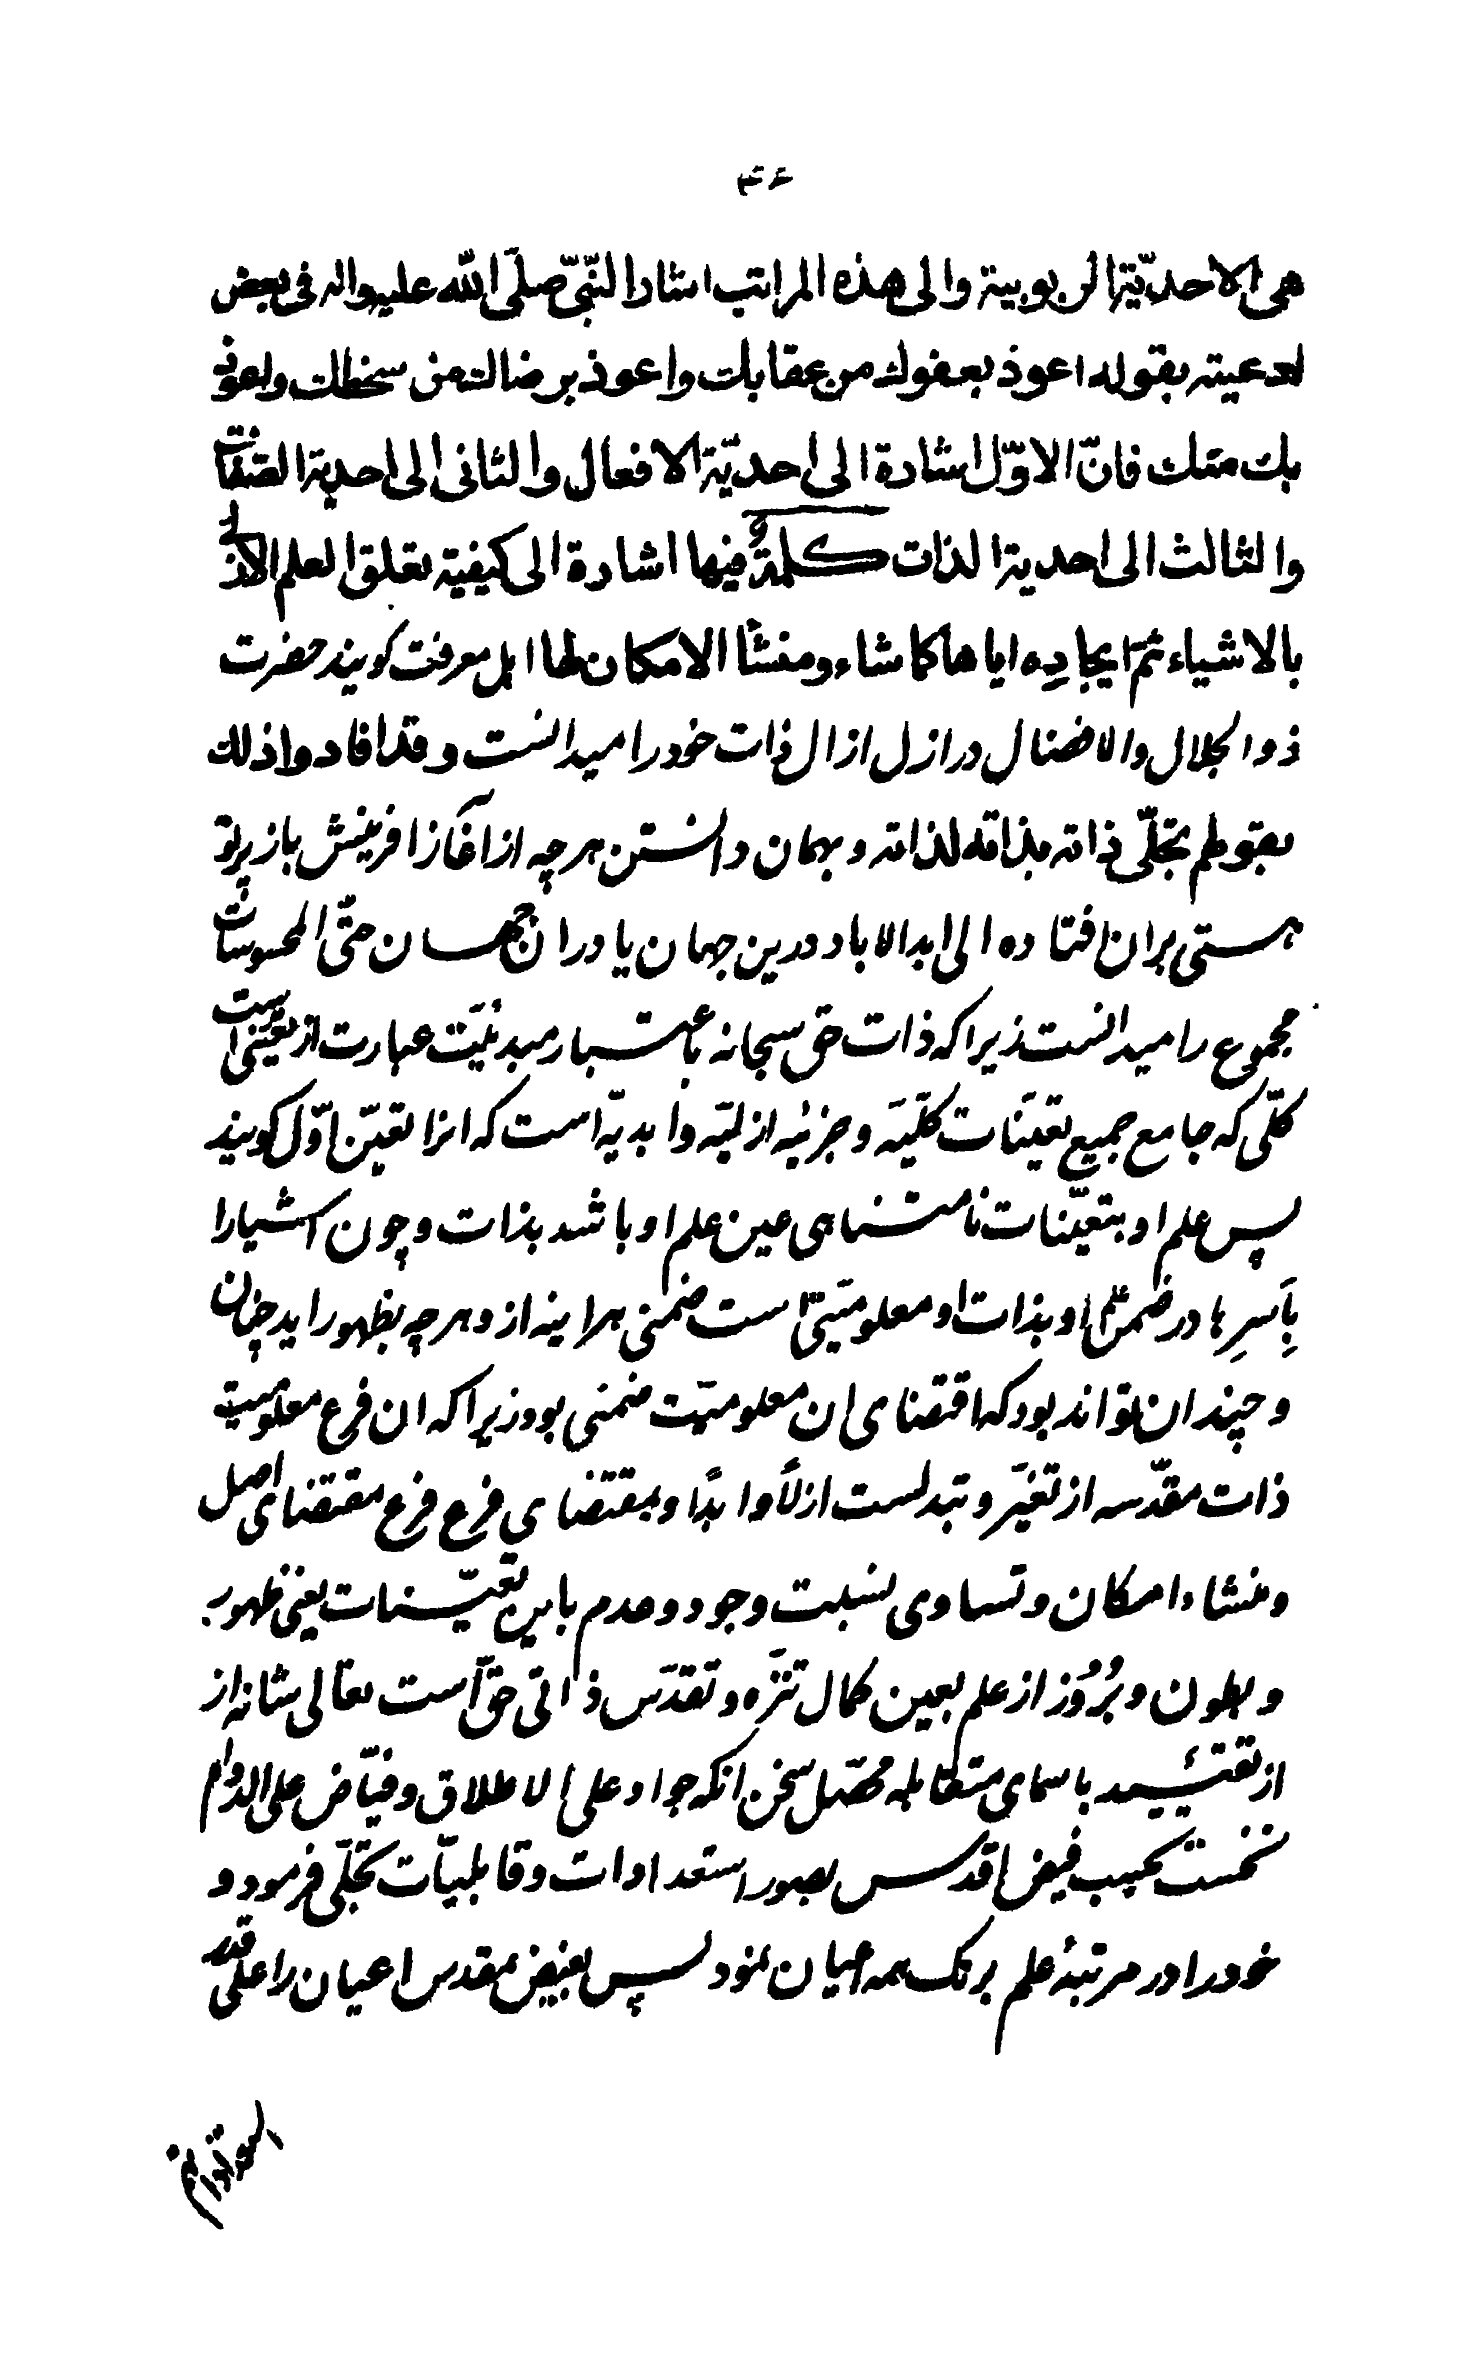 ۴۶
هی الاحدیّة الربوبیة والی هذه المراتب اشار النّبیّ صلّی اللّه علیه واله فی بعض
ادعیته بقوله اعوذ بعفوك من عقابك واعوذ برضاك من سخطك واعوذ
بك منك فانّ الاوّل اشارة الی احدیّة الافعال والثانی الی احدیة الصّفات
والثالث الی احدیة الذات کلمةٌ فیها اشارة الی کیفیة تعلق العلم الازلی
بالاشیاء ثمّ ایجادِه ایاها کما شاء ومنشأ الامکان لها اهل معرفت کویند حضرت
ذو الجلال والافضال در ازل ازال ذات خود را میدانست وقد افادوا ذلك
بقولهم تجلّی ذاته بذاته لذاته و بهمان دانستن هرچه از آغاز افرینش باز پرتو
هستی بران افتاده الی ابد الاباد درین جهان یا دران جهان حتّی المحسوسات
مجموع را میدانست زیرا که ذات حق سبحانه باعتبار مبدئیّت عبارت از تعیّنی است
کلّی که جامع جمیع تعیّنات کلّیّه و جزئیه ازلیّه وابدیّه است که انرا تعیّن اوّل کویند
پس علم او بتعیّنات نامتناهی عین علم او باشد بذات و چون اشیا را
بِاَسرِها در ضمن علم او بذات او معلومیّتی است ضمنی هراینه ازو هرچه بظهور اید چنان
و چندان تواند بود که اقتضای ان معلومیّت ضمنی بود زیرا که ان فرع معلومیت
ذات مقدّسه از تغیّر و تبدلست ازلاً وابدًا و مقتضای فرع فرع مقتضای اصل
و منشاء امکان و تساوی نسبت وجود و عدم باین تعیّنات یعنی ظهور
و بطون و بُرُوز از علم بعین کمال تنزّه و تقدّس ذاتی حقّ است تعالی شانه از
از تقیّید باسمای متقابله محصّل سخن انکه جواد علی الاطلاق و فیّاض علی الدوام
نخست بحسب فیض اقدس بصور استعدادات و قابلیّات تجلّی فرمود و
خود را در مرتبهٔ علم برنک همه اعیان نمود پس بفیض مقدس اعیان را علی قدر
استعداداتهم